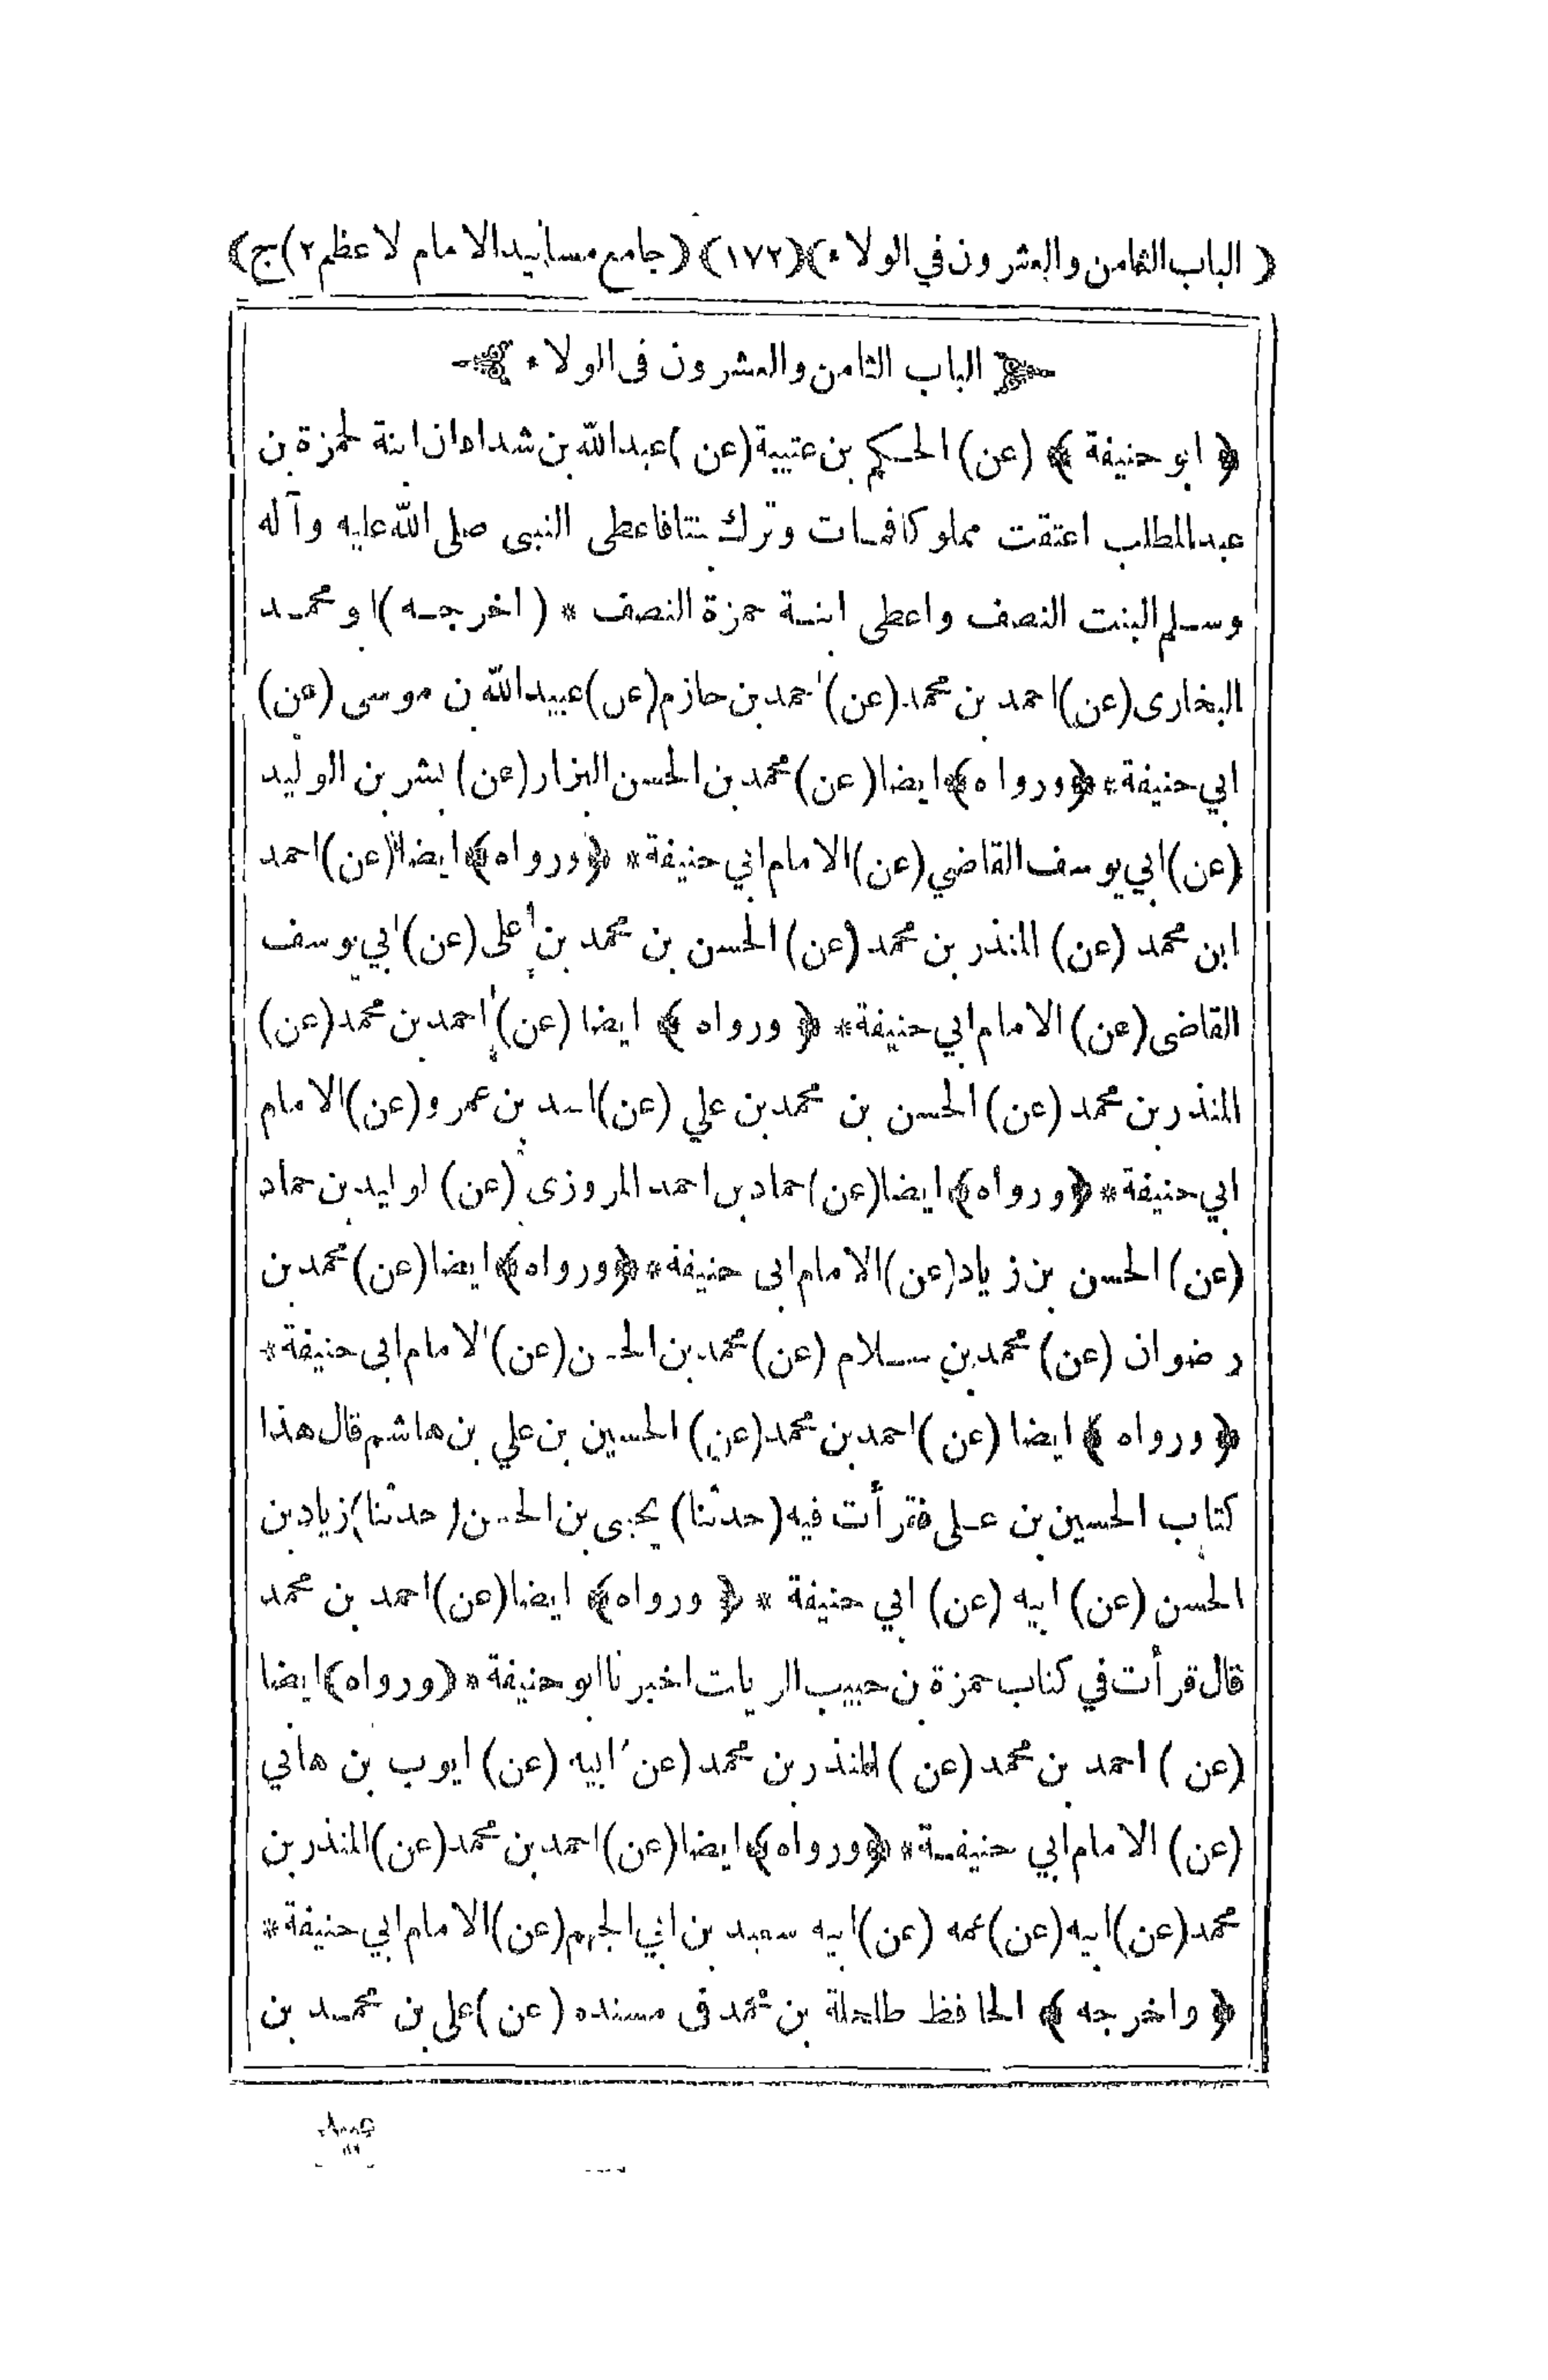 ( الباب الثامن والعشرون في الولاء ) ( ١٧٢ ) ( جامع مسانيد الامام لاعظم ٢ ) ج )
الباب الثامن والعشرون فى الولاء *
﴿ ابو حنيفة ﴾ (عن) الحكم بن عتيبة (عن) عبدالله بن شداد ان ابنة لحمزة بن
عبدالمطلب اعتقت مملوكا فمات وترك بنتا فاعطى النبى صلى الله عليه وآله
وسلم البنت النصف واعطى ابنة حمزة النصف * (اخرجه) ابو محمد
البخارى (عن) احمد بن محمد (عن) احمد بن حازم (عن) عبيدالله بن موسى (عن)
ابي حنيفة * ﴿ ورواه ﴾ ايضا (عن) محمد بن الحسن البزار (عن) بشر بن الوليد
(عن) ابي يوسف القاضي (عن) الامام ابي حنيفة * ﴿ ورواه ﴾ ايضا (عن) احمد
ابن محمد (عن) المنذر بن محمد (عن) الحسن بن محمد بن على (عن) ابي يوسف
القاضى (عن) الامام ابي حنيفة * ﴿ ورواه ﴾ ايضا (عن) احمد بن محمد (عن)
المنذر بن محمد (عن) الحسن بن محمد بن علي (عن) اسد بن عمرو (عن) الامام
ابي حنيفة * ﴿ ورواه ﴾ ايضا (عن) حماد بن احمد المروزى (عن) لوليد بن حماد
(عن) الحسن بن زياد (عن) الامام ابى حنيفة * ﴿ ورواه ﴾ ايضا (عن) محمد بن
رضوان (عن) محمد بن سلام (عن) محمد بن الحسن (عن) الامام ابى حنيفة *
﴿ ورواه ﴾ ايضا (عن) احمد بن محمد (عن) الحسين بن علي بن هاشم قال هذا
كتاب الحسين بن على فقرأت فيه (حدثنا) يحيى بن الحسن (حدثنا) زياد بن
الحسن (عن) ابيه (عن) ابي حنيفة * ﴿ ورواه ﴾ ايضا (عن) احمد بن محمد
قال قرأت في كتاب حمزة بن حبيب الزيات اخبرنا ابو حنيفة * (ورواه) ايضا
(عن) احمد بن محمد (عن) المنذر بن محمد (عن) ابيه (عن) ايوب بن هاني
(عن) الامام ابي حنيفة * ﴿ ورواه ﴾ ايضا (عن) احمد بن محمد (عن) المنذر بن
محمد (عن) ابيه (عن) عمه (عن) ابيه سعيد بن ابي الجهم (عن) الامام ابي حنيفة *
﴿ واخرجه ﴾ الحافظ طلحة بن محمد فى مسنده (عن) على بن محمد بن